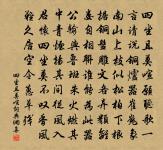 四坐且莫喧願聽歌一
言請說銅鑪器崔嵬象
南山上枝似松柏下根
據銅盤雕文各異類離
婁自相聯誰能為此器
公輸與魯班朱火然其
中青煙揚其間從風入
君懷四坐莫不歎香風
難久居空令蕙草殘
四坐且莫喧